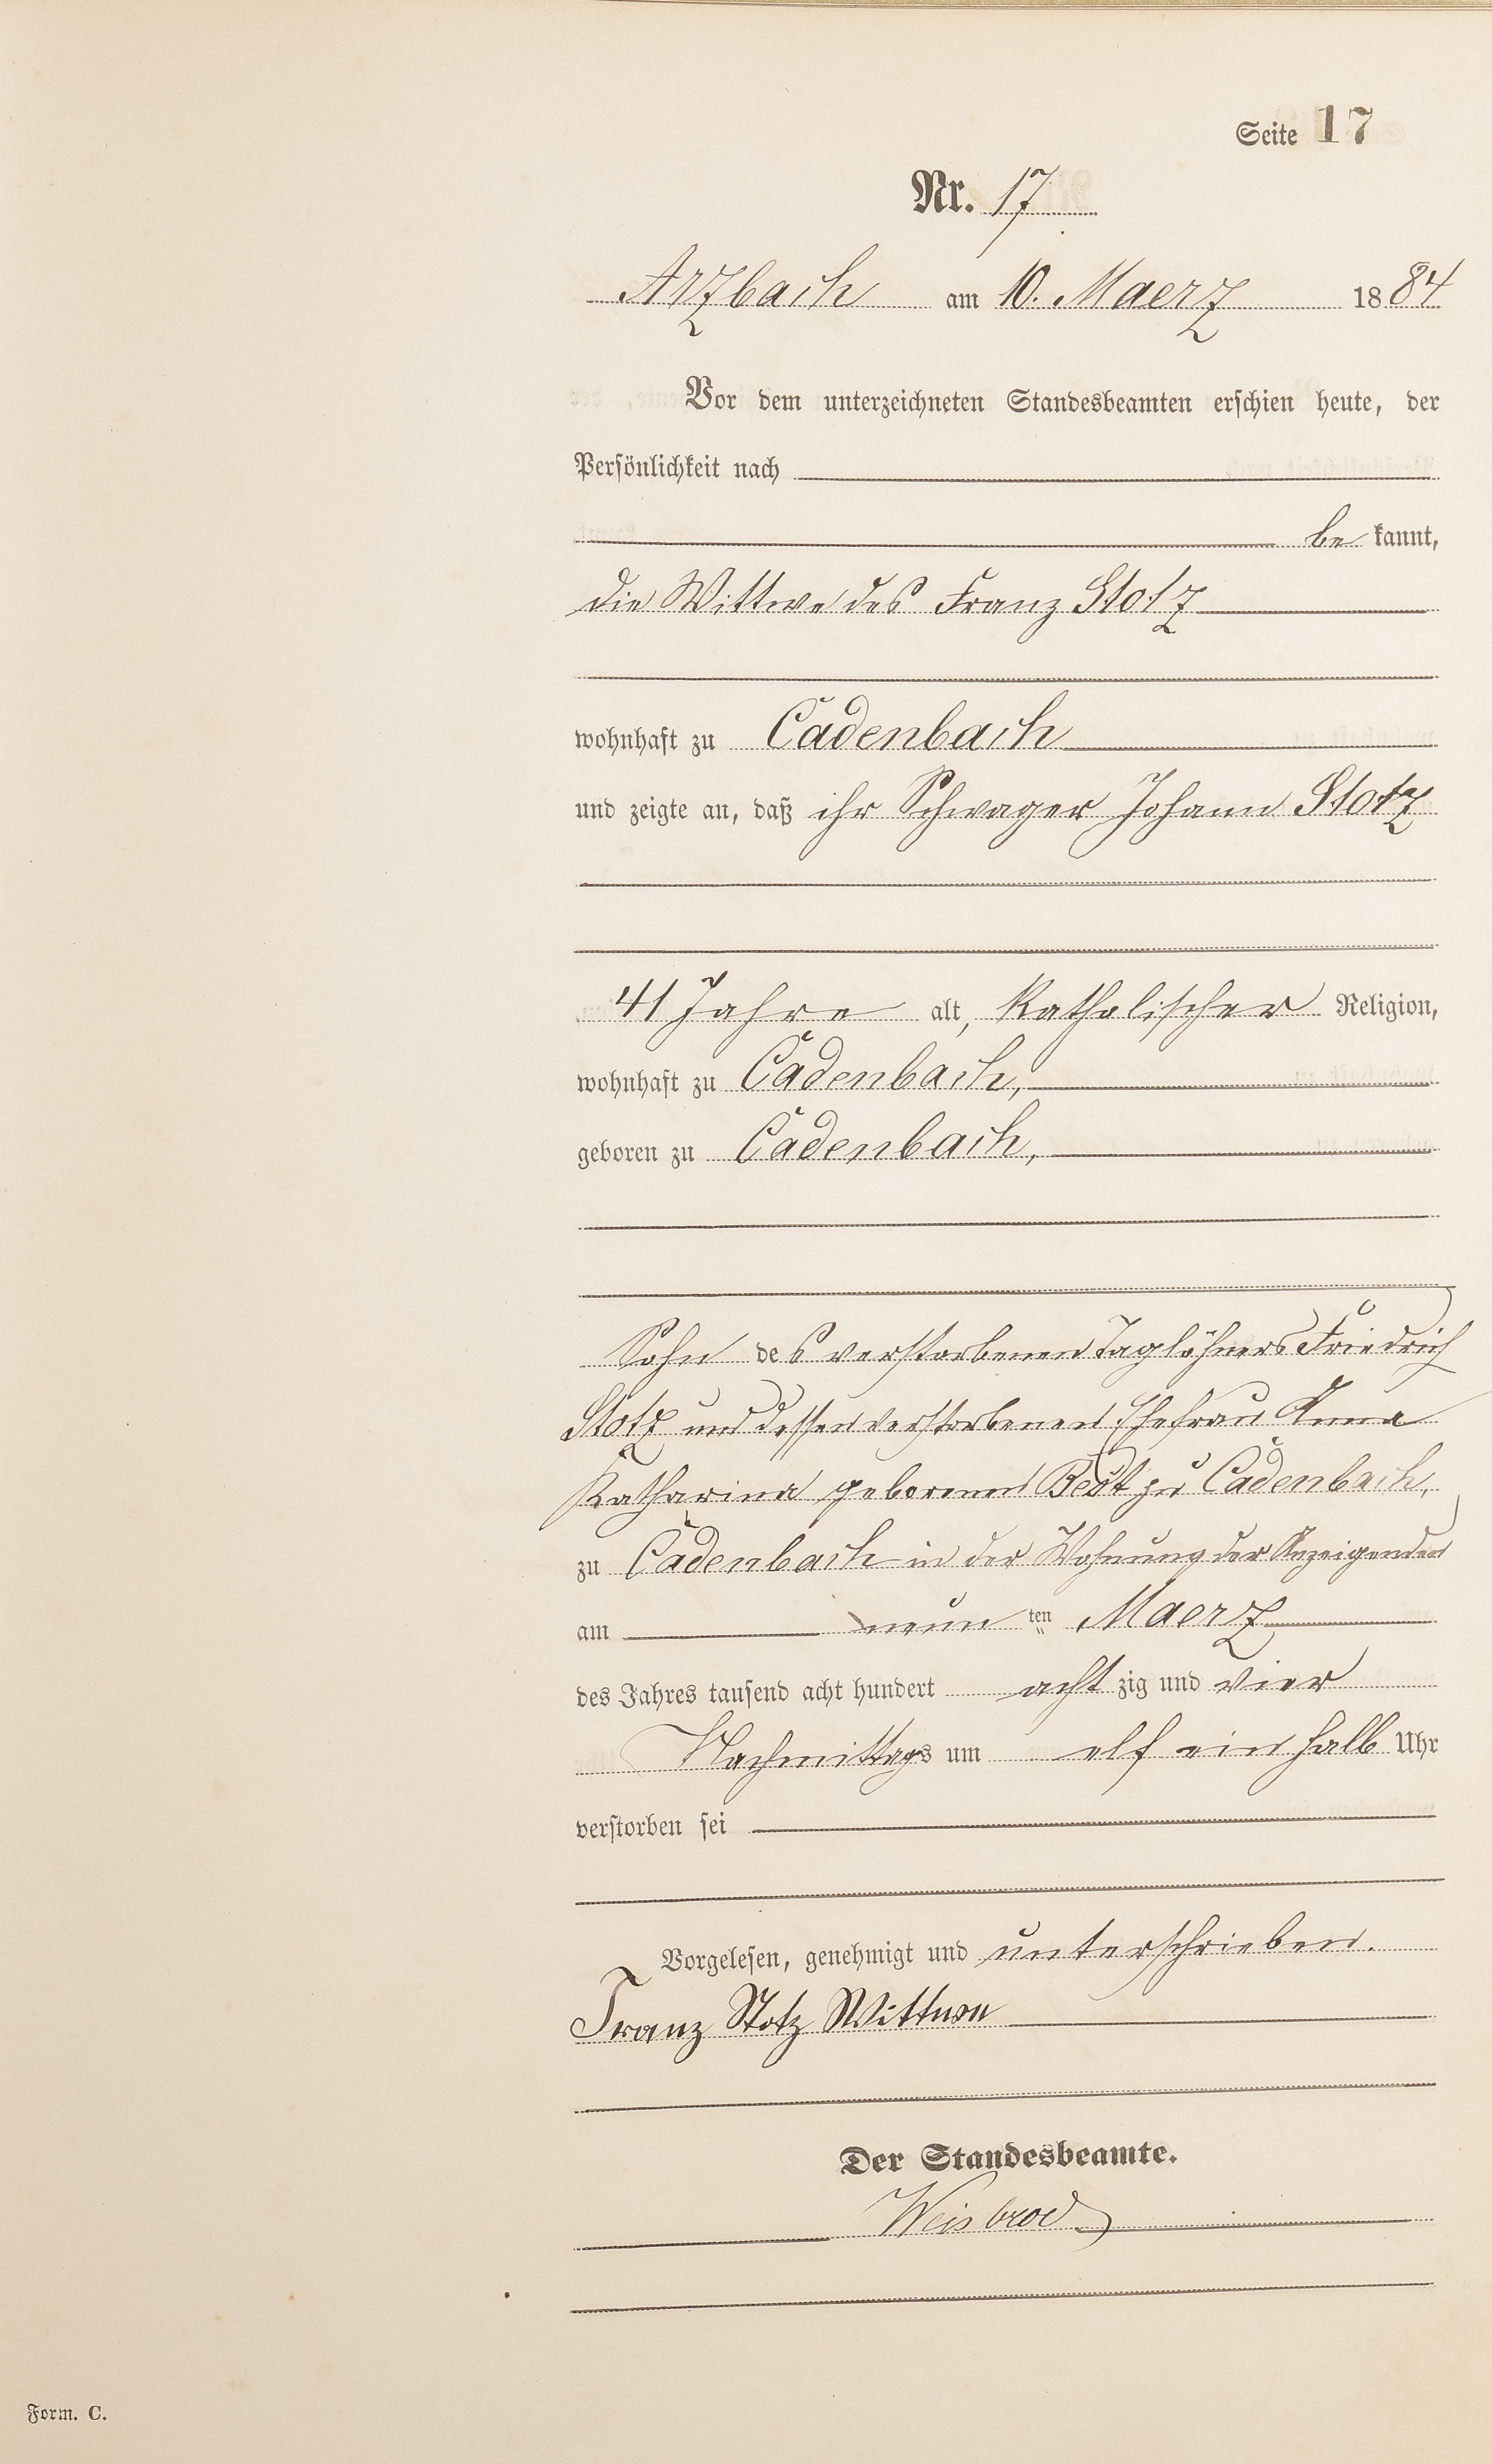 Seite 17
Nr. 17
Arzbach am 10. Maerz 1884
Vor dem unterzeichneten Standesbeamten erschien heute, der
Persönlichkeit nach
be kannt,
die Wittwe des Franz Stotz
wohnhaft zu Cadenbach
und zeigte an, daß ihr Schwager Johann Stotz
41 Jahre alt, Katholischer Religion,
wohnhaft zu Cadenbach,
geboren zu Cadenbach,
Sohn des verstorbenen Taglöhners Friedrich
Stotz und dessen verstorbenen Ehefrau Anna
Katharina geborenen zu Cadenbach,
zu Cadenbach in der Wohnung der Anzeigenden
am neun ten Maerz
des Jahres tausend acht hundert acht zig und vier
Nachmittags um elf ein halb Uhr
verstorben sei
Vorgelesen, genehmigt und unterschrieben.
Franz Stotz Wittwe
Der Standesbeamte.
Weisbrod
Form. C.